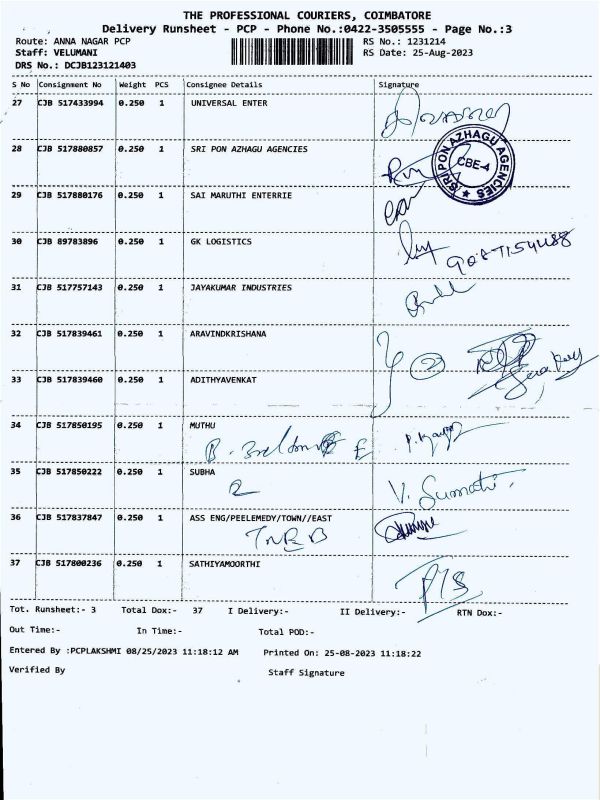 THE PROFESSIONAL COURIERS, COIMBATORE
Delivery Runsheet - PCP - Phone No.:0422-3505555 - Page No.:3
Route: ANNA NAGAR PCP RS No.: 1231214
Staff: VELUMANI RS Date: 25-Aug-2023
DRS No.: DCJB123121403
S No Consignment No Weight PCS Consignee Details Signature
27 CJB 517433994 0.250 1 UNIVERSAL ENTER
28 CJB 517880857 0.250 1 SRI PON AZHAGU AGENCIES
SRI PON AZHAGU AGENCIES
CBE-4
29 CJB 517880176 0.250 1 SAI MARUTHI ENTERRIE
30 CJB 89783896 0.250 1 GK LOGISTICS
31 CJB 517757143 0.250 1 JAYAKUMAR INDUSTRIES
32 CJB 517839461 0.250 1 ARAVINDKRISHANA
33 CJB 517839460 0.250 1 ADITHYAVENKAT
34 CJB 517850195 0.250 1 MUTHU
35 CJB 517850222 0.250 1 SUBHA
V. Sumathi
36 CJB 517837847 0.250 1 ASS ENG/PEELEMEDY/TOWN//EAST
37 CJB 517800236 0.250 1 SATHIYAMOORTHI
Tot. Runsheet:- 3 Total Dox:- 37 I Delivery:- II Delivery:- RTN Dox:-
Out Time:- In Time:- Total POD:-
Entered By :PCPLAKSHMI 08/25/2023 11:18:12 AM Printed On: 25-08-2023 11:18:22
Verified By Staff Signature